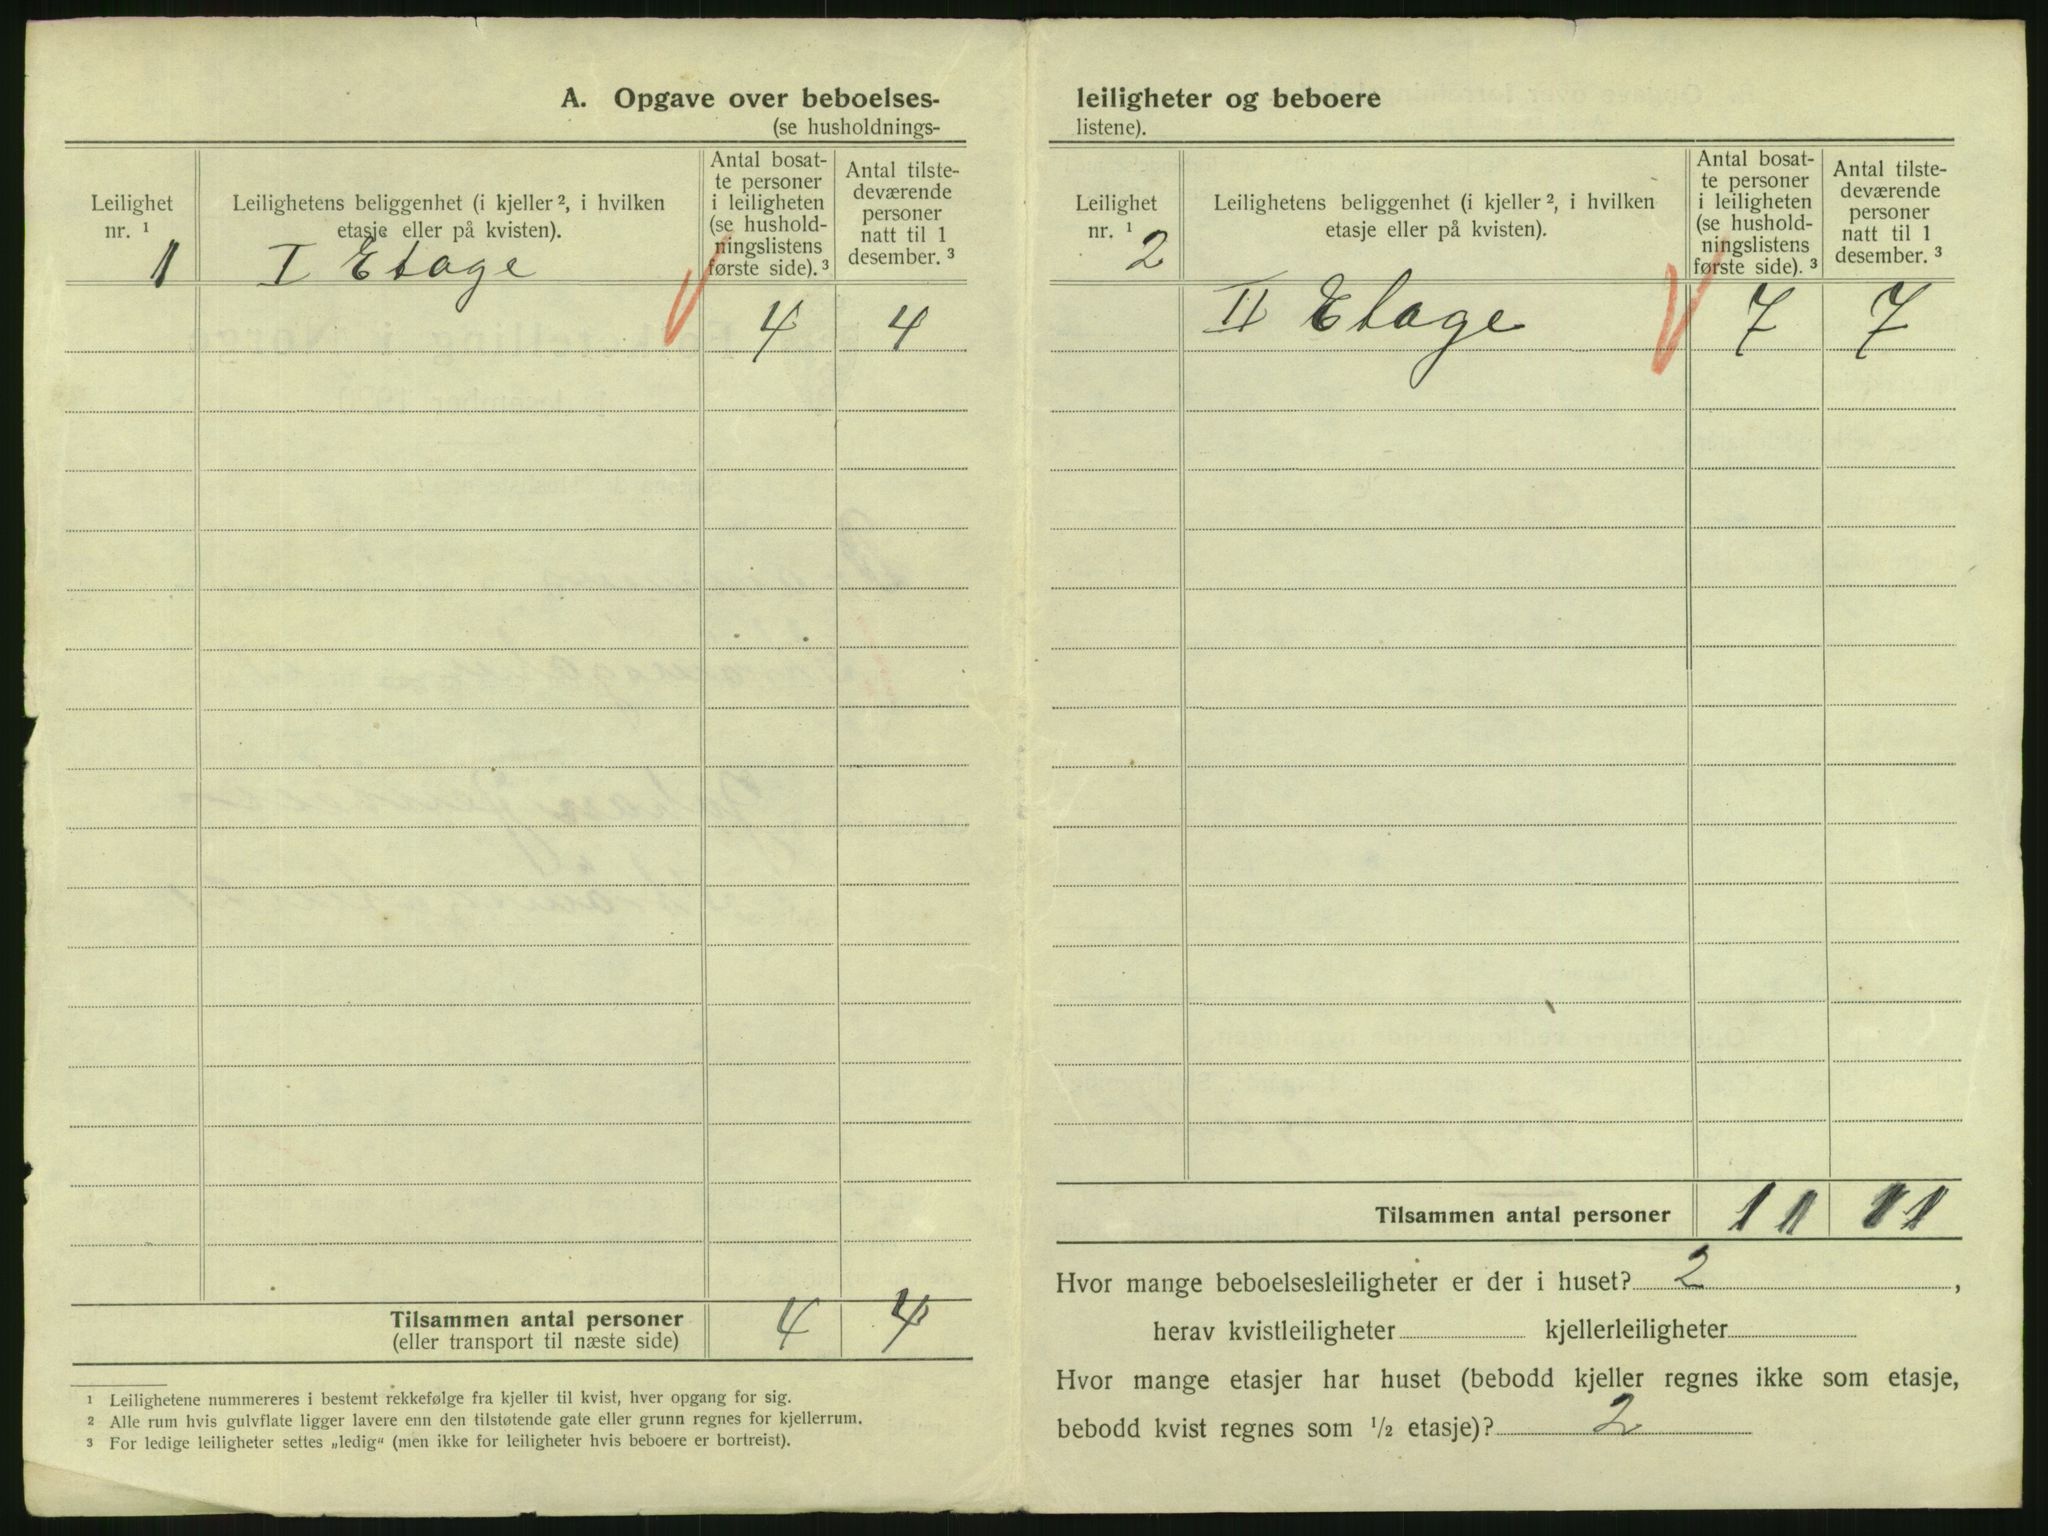 A. Opgave over beboelses-
(se husholdnings-
Leilighet
nr. ¹
Leilighetens beliggenhet (i kjeller ², i hvilken
etasje eller på kvisten).
Antal bosat-
te personer
i leiligheten
(se hushold-
ningslistens
første side). ³
Antal tilste-
deværende
personer
natt til 1
desember. ³
1 I Etage
4 4
Tilsammen antal personer 4 4
(eller transport til næste side)
¹ Leilighetene nummereres i bestemt rekkefølge fra kjeller til kvist, hver opgang for sig.
² Alle rum hvis gulvflate ligger lavere enn den tilstøtende gate eller grunn regnes for kjellerrum.
³ For ledige leiligheter settes „ledig“ (men ikke for leiligheter hvis beboere er bortreist).
leiligheter og beboere
listene).
Leilighet
nr. ¹
Leilighetens beliggenhet (i kjeller ², i hvilken
etasje eller på kvisten).
Antal bosat-
te personer
i leiligheten
(se hushold-
ningslistens
første side). ³
Antal tilste-
deværende
personer
natt til 1
desember. ³
2
II Etage 7 7
Tilsammen antal personer 11 11
Hvor mange beboelsesleiligheter er der i huset? 2 ,
herav kvistleiligheter kjellerleiligheter
Hvor mange etasjer har huset (bebodd kjeller regnes ikke som etasje,
bebodd kvist regnes som ½ etasje)? 2